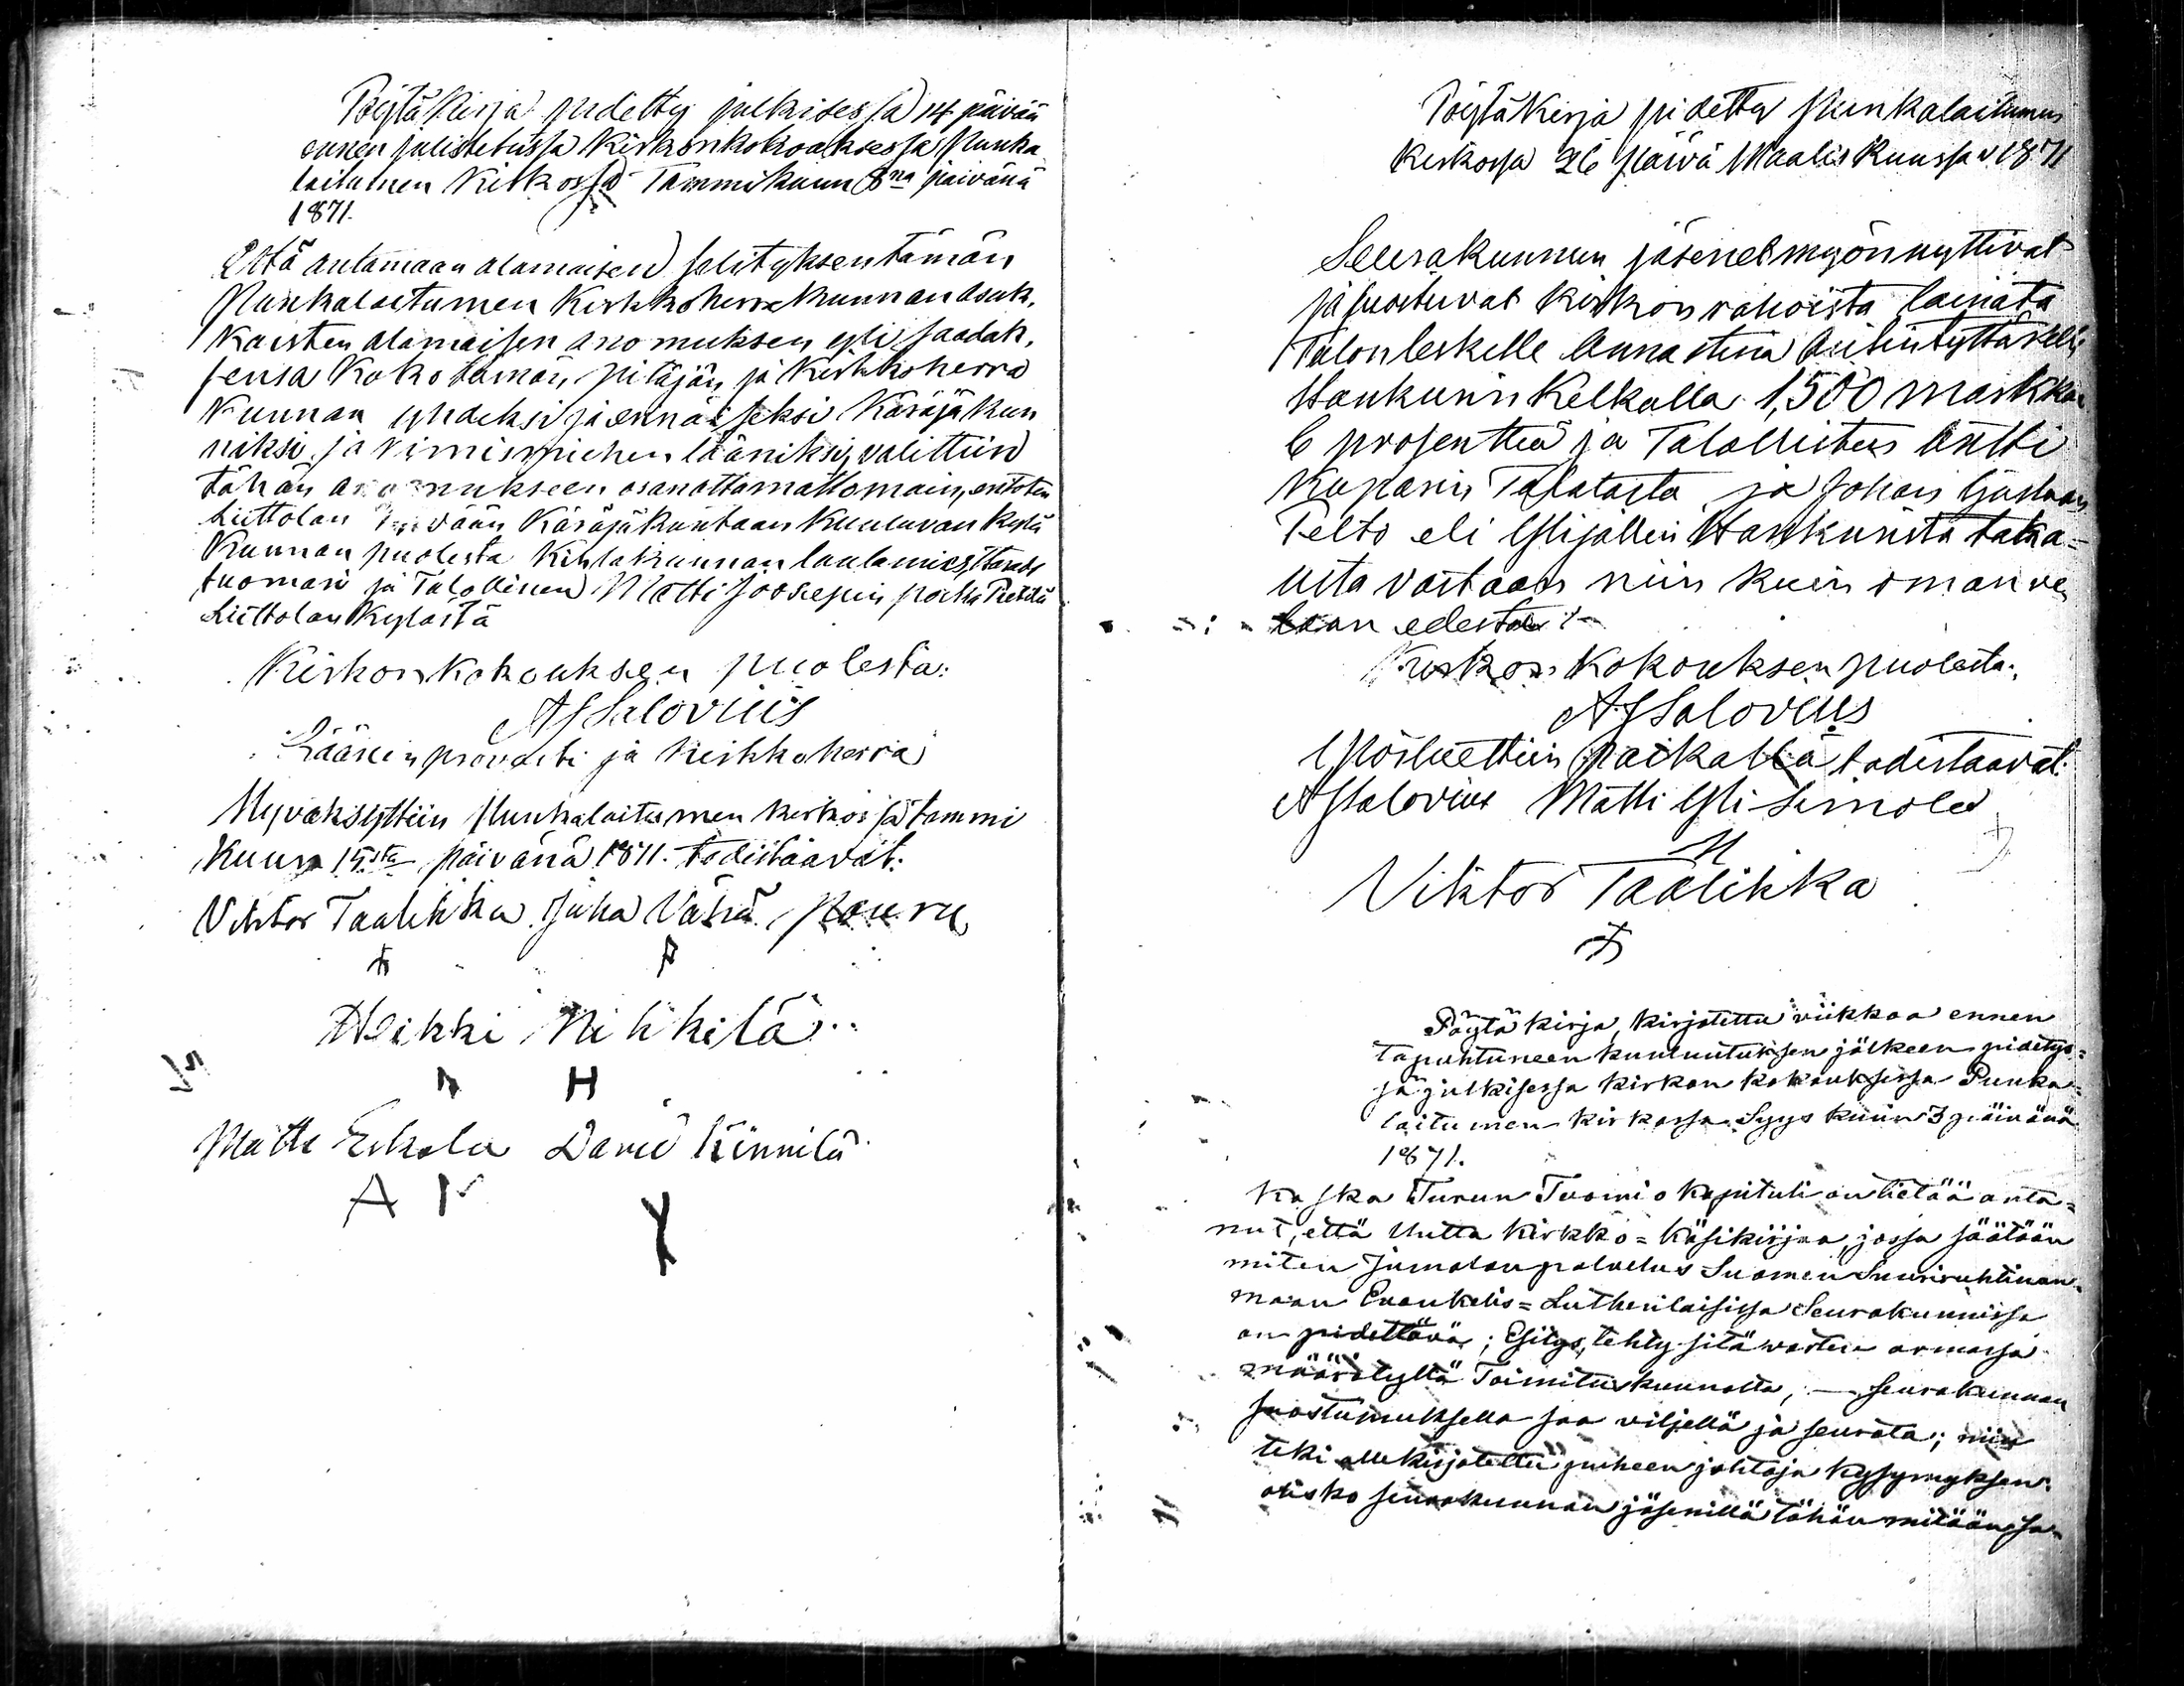 Pöytäkirja pidetty julkisessa 14 päivää
ennen julistetussa Kirkonkokouksessa Punka
laitumen Kirkossa Tammikuun 8na päivänä
1871.
Että antamaan alamaisen selityksen tämän
Punkalaitumen Kirkkoherrakunnan asuk,
kaisten alamaisen anomuksen yli saadak,
sensa koko tämän pitäjän ja kirkkoherra
kunnan yhdeksi ja erinäiseksi Käräjäkun
niksi ja Nimismiehen lääniksi, valittiin
tähän anomukseen osanottamattomain, entisten
Liittolan Käräjäkuntaan kuuluvan kylä
kunnan puolesta Kihlakunnan lautamies,
tuomari ja Talollinen Matti Joosepin poika
Liittolan kylästä
Kirkonkokouksen puolesta:
A J Salovius
Läänin provasti ja kirkkoherra
Hyväksyttiin Punkalaitumen kirkossa tammi
kuun 15sta päivänä 1871. todistaavat:
Viktor Taalikka Juha Vänä Pouru
Heikki Nikkilä
H
Matti Erkola David Kinnilä
A
Pöytäkirja pidetty Punkalaitumen
Kirkossa 26 päivä Maaliskuussa 1871
Seurakunnun jäsenet myönnyttivat
ja suostuvat kirkon rahoista lainata
Talonleskelle Anna Stina Antintyttärelle
Hankurin Kelkalla 1,500 markkaa
6 prosenttia ja Talolliset Antti
Kuparin Talalasta ja Johan Gustaav
Pelto eli Ylijallin Hankurista taka=
usta vastaan niin kuin oman ve
laan edestä
Kirkon Kokouksen puolesta:
A J Salovius
Ylösluettiin paikalla todistaavat:
A J Salovius Matti Yli-Simola
M
Viktor Taalikka
Pöytäkirja, kirjotettu viikkoa ennen
tapahtuneen kuulutuksen jälkeen pidetys=
sä julkisessa kirkon kokouksessa Punka=
laitumen kirkossa Syys kuun 3 päivänä
1871.
Koska Turun Tuomio kapituli on tietää anta=
nut, että Uutta Kirkko=Käsikirjaa, jossa säätään
miten Jumalan palvelus Suomen Suuriruhtinan=
maan Evankelis=Lutherilaisissa Seurakunnissa
on pidettävä; Esitys, tehty sitä warten armossa
määrätyltä Toimituskunnalta, — seurakunnan
suostumuksella saa viljellä ja seurata; niin
teki allekirjotettu puheen johtaja kysymyksen:
olisko seurakunnan jäsenillä tähän mitään sa=